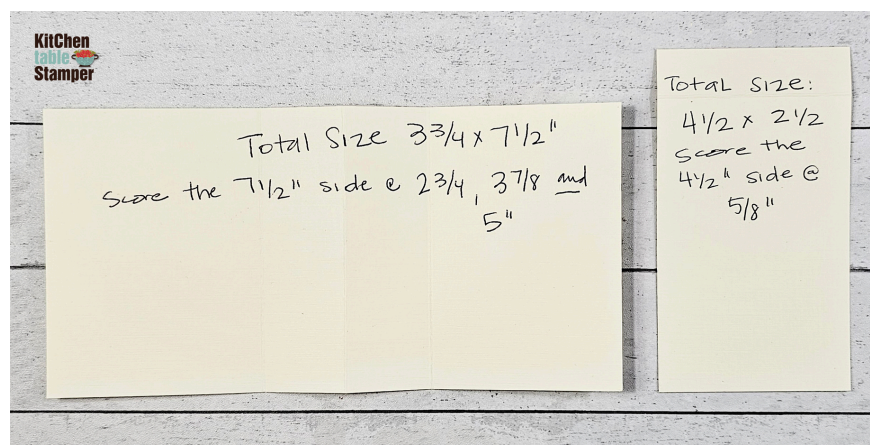 KitChen
table
Stamper
Total Size 3 3/4 x 7 1/2"
Score the 7 1/2" side @ 2 3/4, 3 7/8 and
5"
Total Size:
4 1/2 x 2 1/2
Score the
4 1/2" side @
5/8"